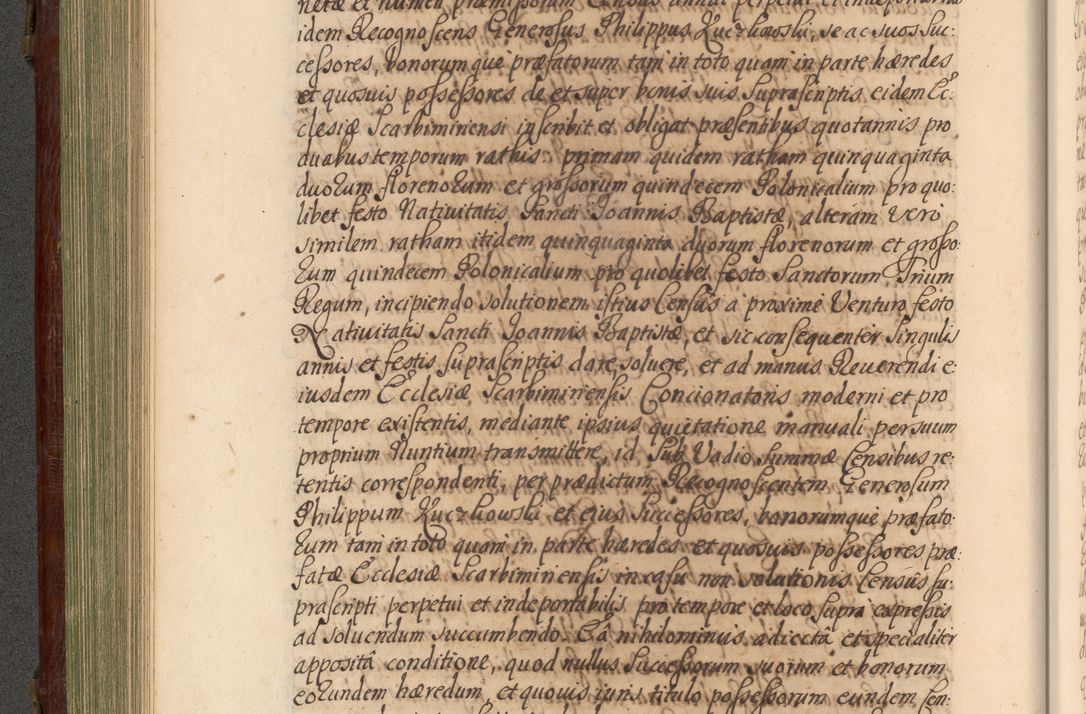 netæ et numeri præmissorum Census annui perpetui et indeportabilis
idem Recognoscens Generosus Philippus Kuczkowski, se ac suos suc:
cessores, bonorumque præfatorum tam in toto quam in parte hæredes
et quosuis possessores de et super bonis suis suprascriptis eidem Ec:
clesiæ Scarbimiriensi inscribit et obligat præsentibus quotannis pro
duabus temporum rathis: primam quidem ratham quinquaginta
duorum florenorum et grossorum quindecem Polonicalium pro quo:
libet festo Nativitatis Sancti Joannis Baptistæ, alteram vero
similem ratham itidem quinquaginta duorum florenorum et grosso:
rum quindecem Polonicalium pro quolibet festo Sanctorum Trium
Regum, incipiendo solutionem istius Census a proximè Venturo festo
Nativitatis Sancti Joannis Baptistæ, et sic consequenter singulis
annis et festis suprascriptis dare, soluere, et ad manus Reuerendi e:
iusdem Ecclesiæ Scarbimiriensis Concionatoris moderni et pro
tempore existentis, mediante ipsius quietatione manuali per suum
proprium Nuntium transmittere, id sub Vadio summæ Censibus re:
tentis correspondenti, per prædictum Recognoscentem Generosum
Philippum Kuczkowski et eius successores, bonorumque præfato:
rum tam in toto quam in parte hæredes et quosuis possessores præ:
fatæ Ecclesiæ Scarbimiriensis in casu non solutionis Census su:
prascripti perpetui et indeportabilis pro tempore et loco supra expressis
ad soluendum succumbendo. Eâ nihilominus adiectâ et specialiter
appositâ conditione, quod nullus successorum suorum et bonorum
eorundem hæredum, et quouis iuris titulo possessorum eundem Cen: